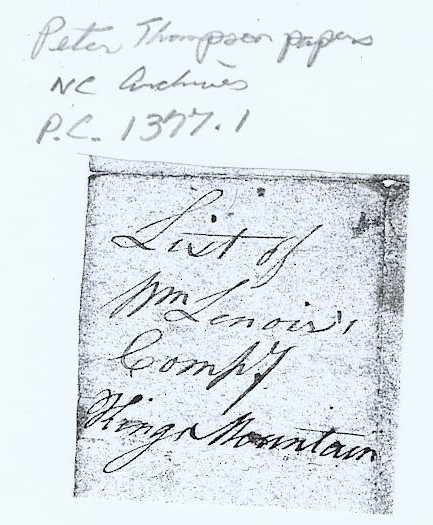 Peter Thompson papers
NC Archives
P.C. 1377.1
List of
Wm Lenoir's
Compy
Kings Mountain